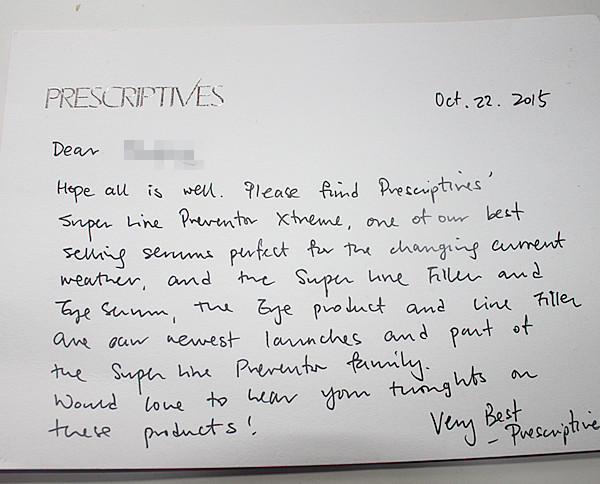 PRESCRIPTIVES
Oct. 22. 2015
Dear
Hope all is well. Please find Prescriptives'
Super Line Preventor Xtreme, one of our best
selling serums perfect for the changing current
weather, and the Super Line Filler and
Eye Serum, the Eye product and Line Filler
are our newest launches and part of
the Super Line Preventor family.
Would love to hear your thoughts on
these products!
Very Best
- Prescriptive